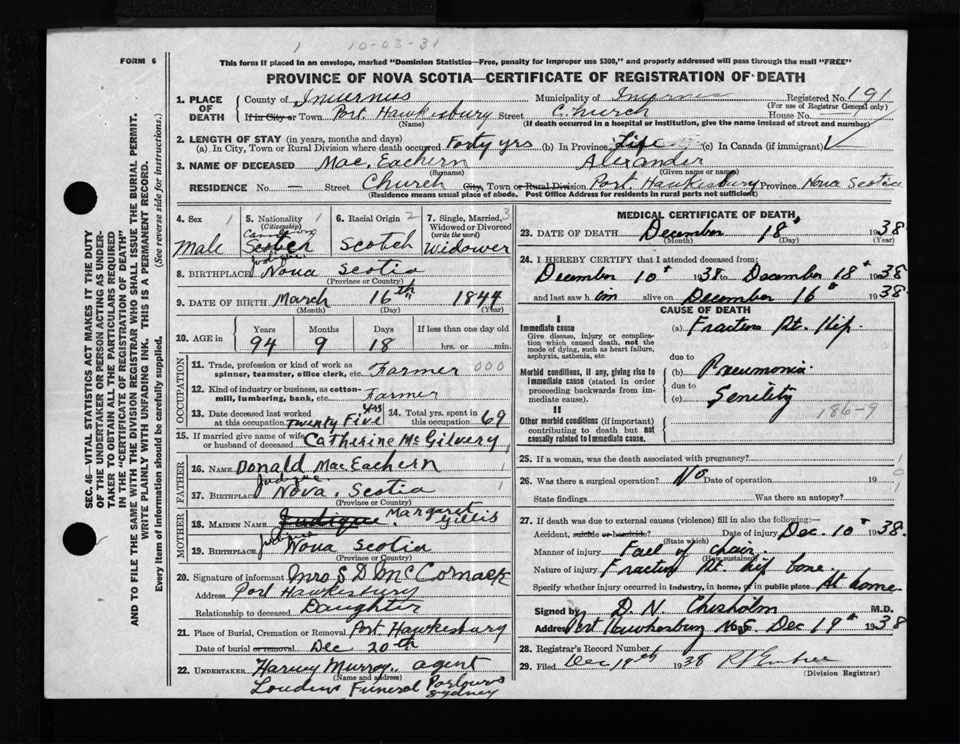 1 10-03-31
FORM 6
This form if placed in an envelope, marked "Dominion Statistics—Free, penalty for improper use $300," and properly addressed will pass through the mail "FREE"
PROVINCE OF NOVA SCOTIA—CERTIFICATE OF REGISTRATION OF DEATH
SEC. 46—VITAL STATISTICS ACT MAKES IT THE DUTY
OF THE UNDERTAKER OR PERSON ACTING AS UNDER-
TAKER TO OBTAIN ALL THE PARTICULARS REQUIRED
IN THE "CERTIFICATE OF REGISTRATION OF DEATH"
AND TO FILE THE SAME WITH THE DIVISION REGISTRAR WHO SHALL ISSUE THE BURIAL PERMIT.
WRITE PLAINLY WITH UNFADING INK. THIS IS A PERMANENT RECORD.
Every item of information should be carefully supplied. (See reverse side for instructions.)
1. PLACE OF DEATH
County of Inverness Municipality of Inverness Registered No. 191
(For use of Registrar General only)
If in City or Town Port Hawkesbury Street Church House No. —
(Name) (If death occurred in a hospital or institution, give the name instead of street and number)
2. LENGTH OF STAY (in years, months and days)
(a) In City, Town or Rural Division where death occurred Forty yrs (b) In Province Life (c) In Canada (if immigrant)
3. NAME OF DECEASED Mac. Eachern Alexander
(Surname) (Given name or names)
RESIDENCE No. — Street Church City, Town or Rural Division Port Hawkesbury Province Nova Scotia
(Residence means usual place of abode. Post Office Address for residents in rural parts not sufficient)
4. Sex 1
Male
5. Nationality 1
(Citizenship)
Canadian
Scotch
6. Racial Origin 2
Scotch
7. Single, Married, 3
Widowed or Divorced
(write the word)
Widower
Judique
8. BIRTHPLACE Nova Scotia
(Province or Country)
9. DATE OF BIRTH March 16th 1844
(Month) (Day) (Year)
10. AGE in
Years Months Days If less than one day old
94 9 18 hrs. or min.
OCCUPATION
11. Trade, profession or kind of work as
spinner, teamster, office clerk, etc. Farmer 000
12. Kind of industry or business, as cotton-
mill, lumbering, bank, etc. Farmer
13. Date deceased last worked
at this occupation Twenty Five yrs
14. Total yrs. spent in
this occupation 69
15. If married give name of wife
or husband of deceased Catherine McGilvery
FATHER
16. NAME Donald MacEachern
Judique
17. BIRTHPLACE Nova. Scotia
(Province or Country)
MOTHER
18. MAIDEN NAME Judique Margaret Gillis
Judique
19. BIRTHPLACE Nova Scotia
(Province or Country)
20. Signature of informant Mrs S D McCormack
Address Port Hawkesbury
Relationship to deceased Daughter
21. Place of Burial, Cremation or Removal Port Hawkesbury
Date of burial or removal Dec 20th
22. UNDERTAKER Harvey Murray, agent
(Name and address)
Loudens Funeral Parlours
Sydney
MEDICAL CERTIFICATE OF DEATH
23. DATE OF DEATH December 18 1938
(Month) (Day) (Year)
24. I HEREBY CERTIFY that I attended deceased from:
December 10th 1938 to December 18th 1938
and last saw him alive on December 16th 1938
CAUSE OF DEATH
I
Immediate cause (a) Fracture Rt. Hip.
Give disease, injury or complica-
tion which caused death, not the
mode of dying, such as heart failure,
asphyxia, asthenia, etc.
due to
Morbid conditions, if any, giving rise to (b) Pneumonia
immediate cause (stated in order due to
proceeding backwards from im-
mediate cause). (c) Senility
II
186-9
Other morbid conditions (if important)
contributing to death but not
causally related to immediate cause.
25. If a woman, was the death associated with pregnancy?
26. Was there a surgical operation? No Date of operation 19
State findings Was there an autopsy?
27. If death was due to external causes (violence) fill in also the following:—
Accident, suicide or homicide? Date of injury Dec. 10th 1938.
(State which)
Manner of injury Fall of chair.
(How sustained)
Nature of injury Fracture Rt. hip bone.
Specify whether injury occurred in industry, in home, or in public place At home
Signed by D. N. Chisholm M.D.
Address Port Hawkesbury N.S. Dec 19th 1938
28. Registrar's Record Number
29. Filed Dec 19th 1938
(Division Registrar)